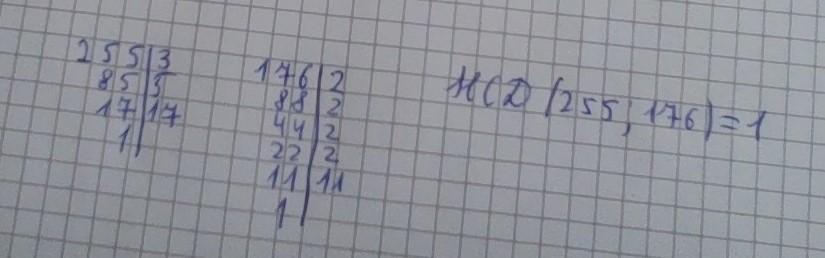 255|3
85|5
17|17
1|
176|2
88|2
44|2
22|2
11|11
1|
НСД (255; 176) = 1